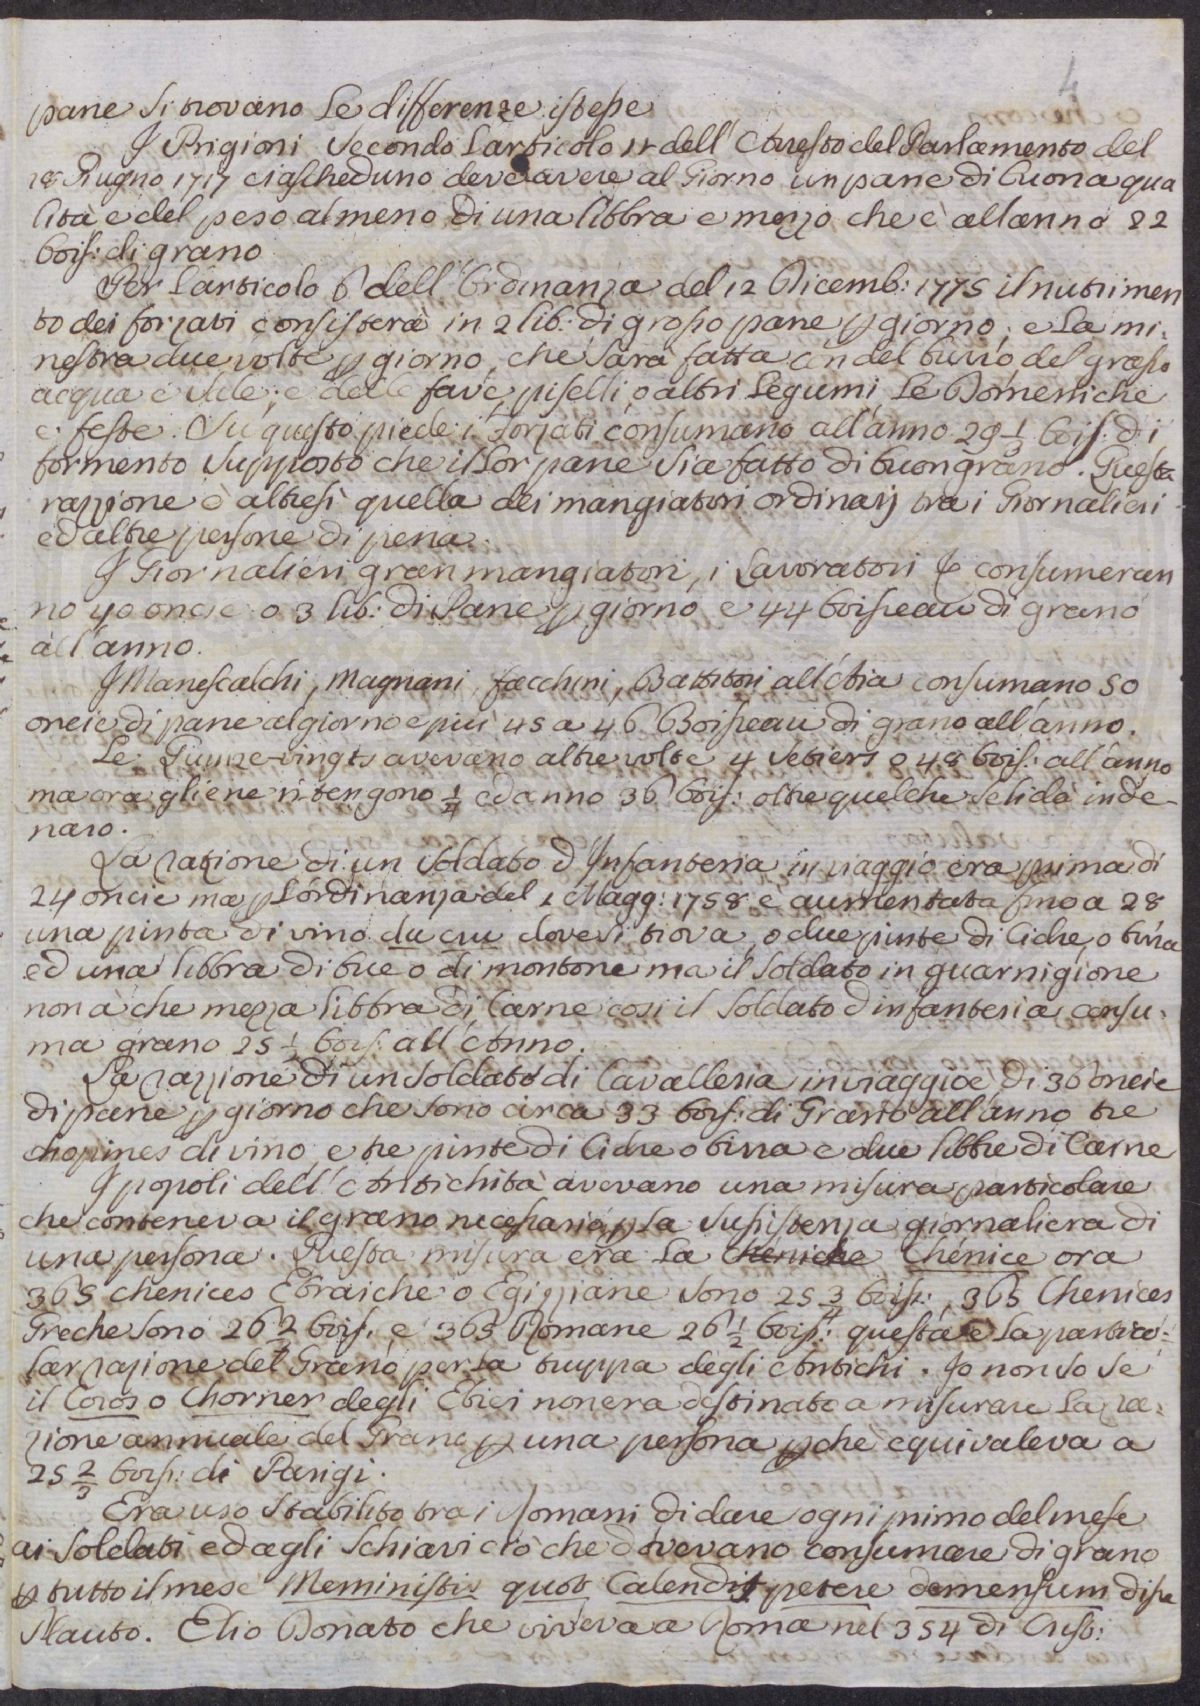 4
pane si trovano le differenze istesse
I Prigioni secondo l'articolo 15 dell'Arresto del Parlamento del
18 Giugno 1717 ciascheduno deve avere al Giorno un pane di buona qua
lità e del peso almeno di una libbra e mezzo che è all'anno 22
bois: di grano
Per l'articolo 6 dell'Ordinanza del 12 Dicemb: 1775 il nutrimen
to dei forzati consisterà in 2 lib: di grosso pane p giorno, e la mi:
nestra due volte p giorno, che sarà fatta con del burro, del grasso
acqua e sale; e delle fave, piselli, o altri Legumi le Domeniche
e feste. Su questo piede i Forzati consumano all'anno 29 1/3 bois: di
formento supposto che il lor pane sia fatto di buon grano. Questa
razzione è altresì quella dei mangiatori ordinarj tra i Giornalieri
ed altre persone di pena.
I Giornalieri gran mangiatori, i Lavoratori &c consumeran
no 40 oncie o 3 lib: di Pane p giorno e 44 boisseau di grano
all'anno.
I Manescalchi, Magnani, facchini, Battitori all'Aia consumano 50
oncie di pane al giorno e più 45 a 46 Boisseau di grano all'anno.
Le Quinze-vingts avevano altre volte 4 setiers o 48 bois: all'anno
ma ora gliene ritengono 1/4 ed anno 36 bois: oltre quel che se li dà in de-
naro.
La razione di un soldato d'Infanteria in viaggio era prima di
24 oncie ma p L'ordinanza del 1 Magg: 1758 è aumentata fino a 28
una pinta di vino du cru dove si trova, o due pinte di Cidre, o birra
ed una libbra di bue o di montone ma il soldato in guarnigione
non à che mezza libbra di Carne così il soldato d'infanteria consu-
ma grano 25 1/2 bois: all'Anno.
La razzione di un soldato di Cavalleria in viaggio è di 36 oncie
di pane p giorno che sono circa 33 bois: di Grano all'anno tre
chopines di vino, e tre pinte di Cidre o birra e due libbre di Carne
I popoli dell'Antichità avevano una misura particolare
che conteneva il grano necessario p la sussistenza giornaliera di
una persona. Questa misura era la Cheniche Chénice ora
365 chenices Ebraiche o Egizziane sono 25 3/4 bois:, 365 Chenices
Greche sono 26 2/7 bois. e 365 Romane 26 1/2 bois: questa è la partico:
lar razione del Grano per la truppa degli Antichi. Io non so se
il Coros o Chorner degli Ebrei non era destinato a misurare la ra:
zione annuale del Grano p una persona p che equivaleva a
25 2/3 bois: di Parigi.
Era uso stabilito tra i Romani di dare ogni primo del mese
ai soldati ed agli schiavi ciò che dovevano consumare di grano
p tutto il mese Meministis quot Calendis petere demensum disse
Plauto. Elio Donato che viveva a Roma nel 354 di Crist: